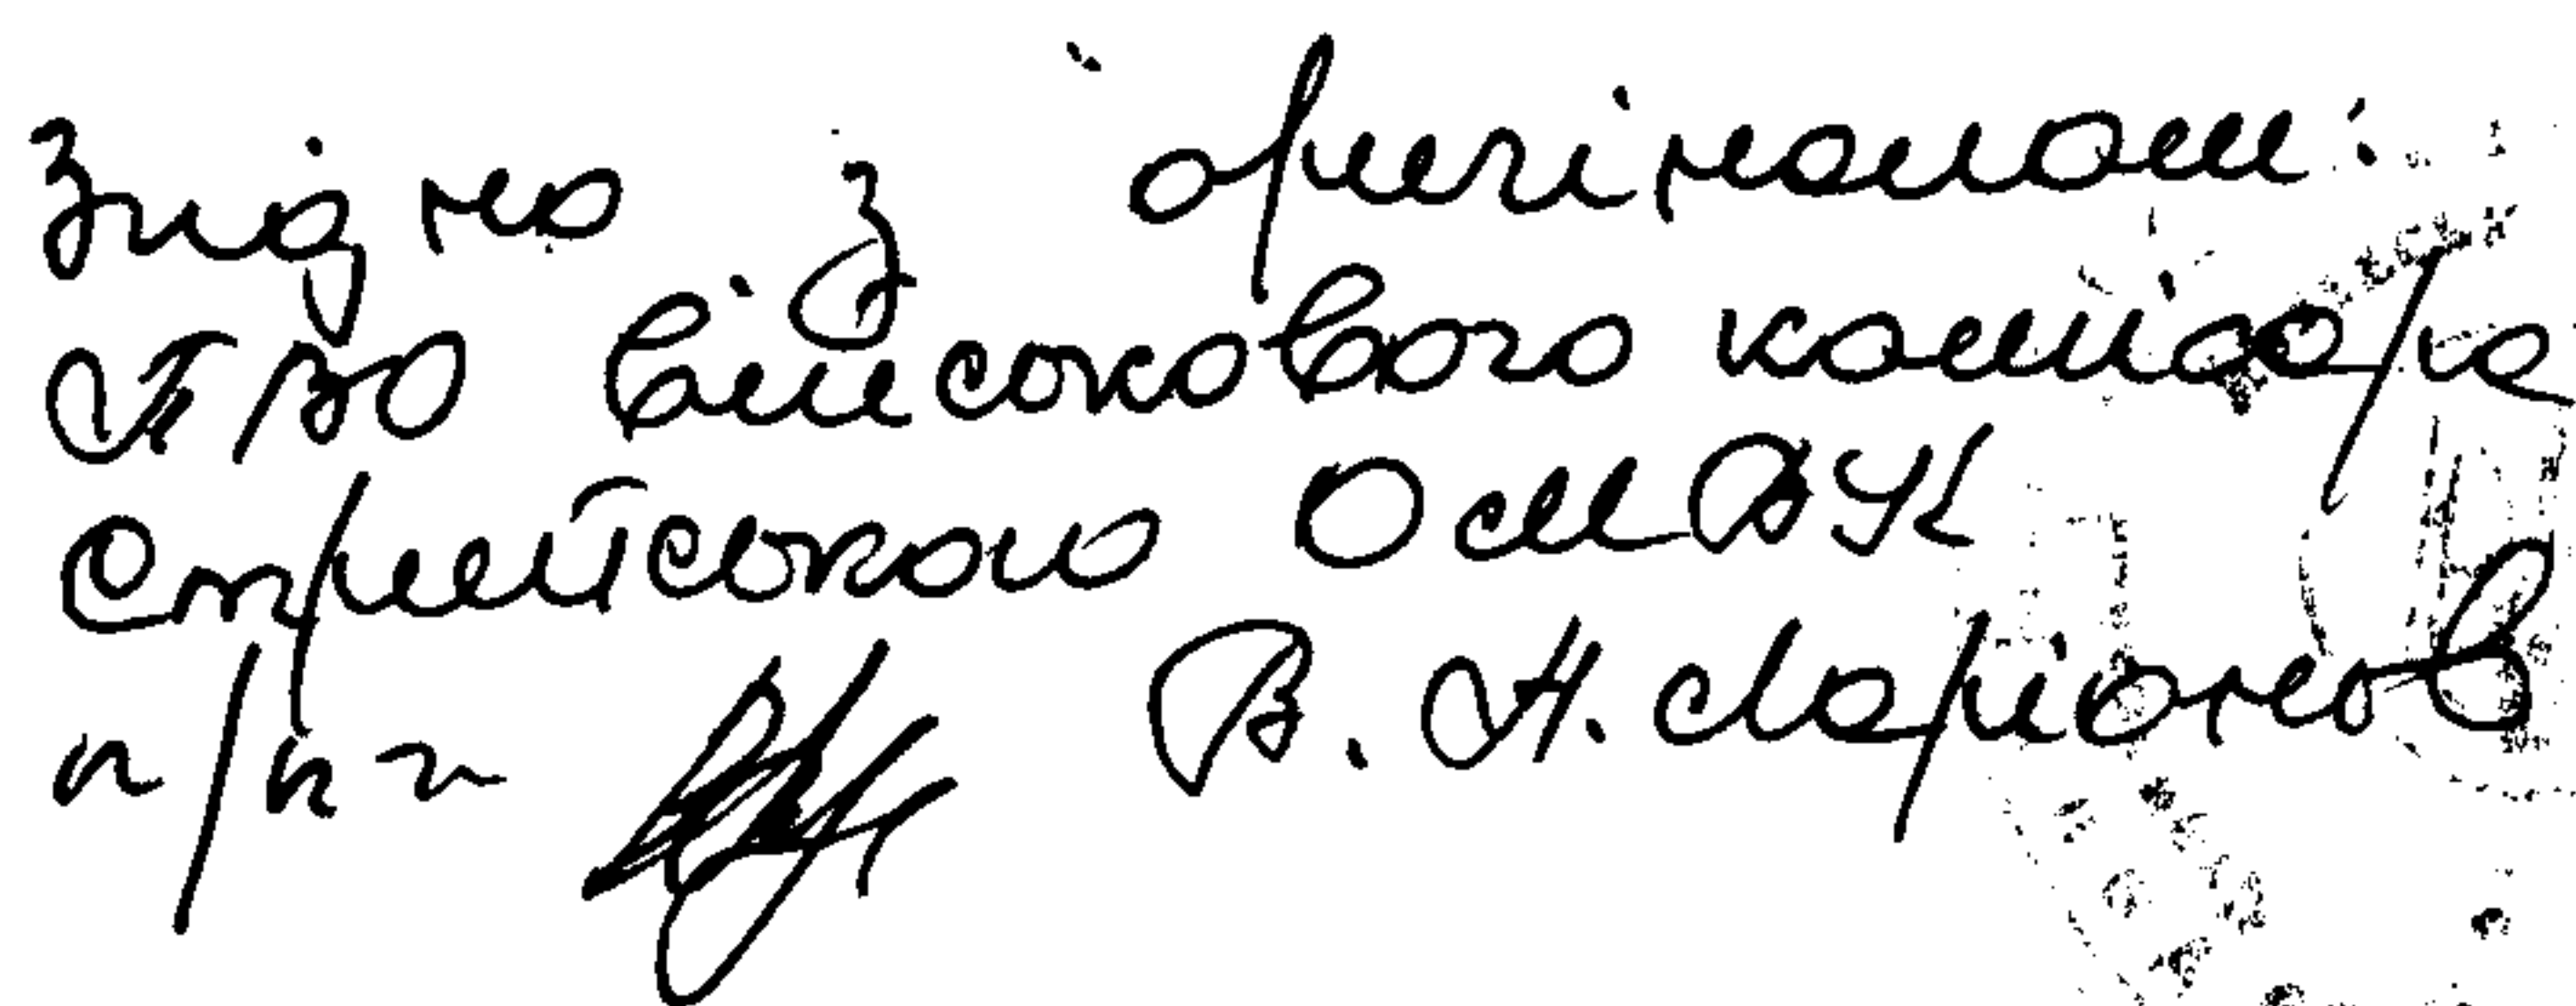 Згідно з оригіналом:
ТВО військового комісара
Стрийського ОМВУК
п/п-к В. Н. Ларіонов